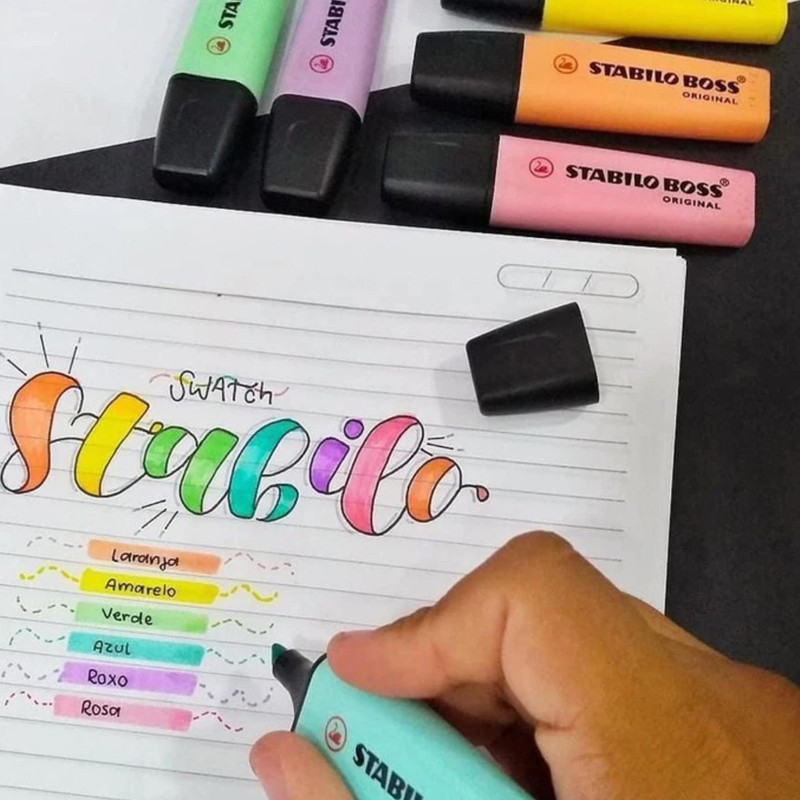 STABI
STABI
ORIGINAL
STABILO BOSS®
ORIGINAL
STABILO BOSS®
ORIGINAL
SWATCH
Stabilo
Laranja
Amarelo
Verde
Azul
Roxo
Rosa
STABIL